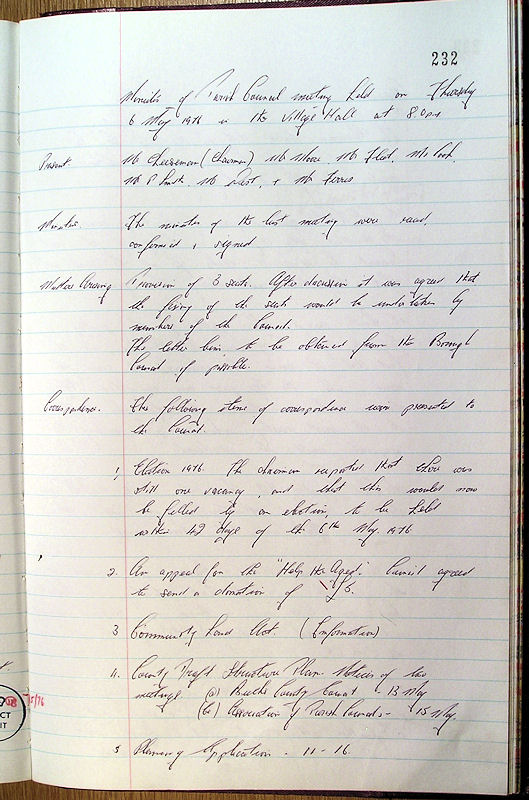 232
Minutes of Parish Council meeting held on Thursday
6 May 1976 in the Village Hall at 8.0pm
Present Mr Cheeseman (Chairman) Mr Moore, Mr Fleet, Mr Cook,
Mr P Smith, Mr &
Minutes The minutes of the last meeting were read,
confirmed & signed
Matters Arising Provision of 3 seats. After discussion it was agreed that
the fixing of the seats would be undertaken by
members of the Council.
The litter bin to be obtained from the Borough
Council if possible.
Correspondence. The following items of correspondence were presented to
the Council.
1, Election 1976. The chairman reported that there was
still one vacancy, and that this would now
be filled by an election, to be held
within 42 days of the 6th May 1976
2. An appeal for the "Help the Aged". Council agreed
to send a donation of £5.
3 Community Land Act. (Information)
4. County Draft Structure Plan. Notices of two
meetings (a) County Council - 13 May
(b) Association of Parish Councils - 15 May.
5 Planning Application - 11 - 16
75/76
CT
IT